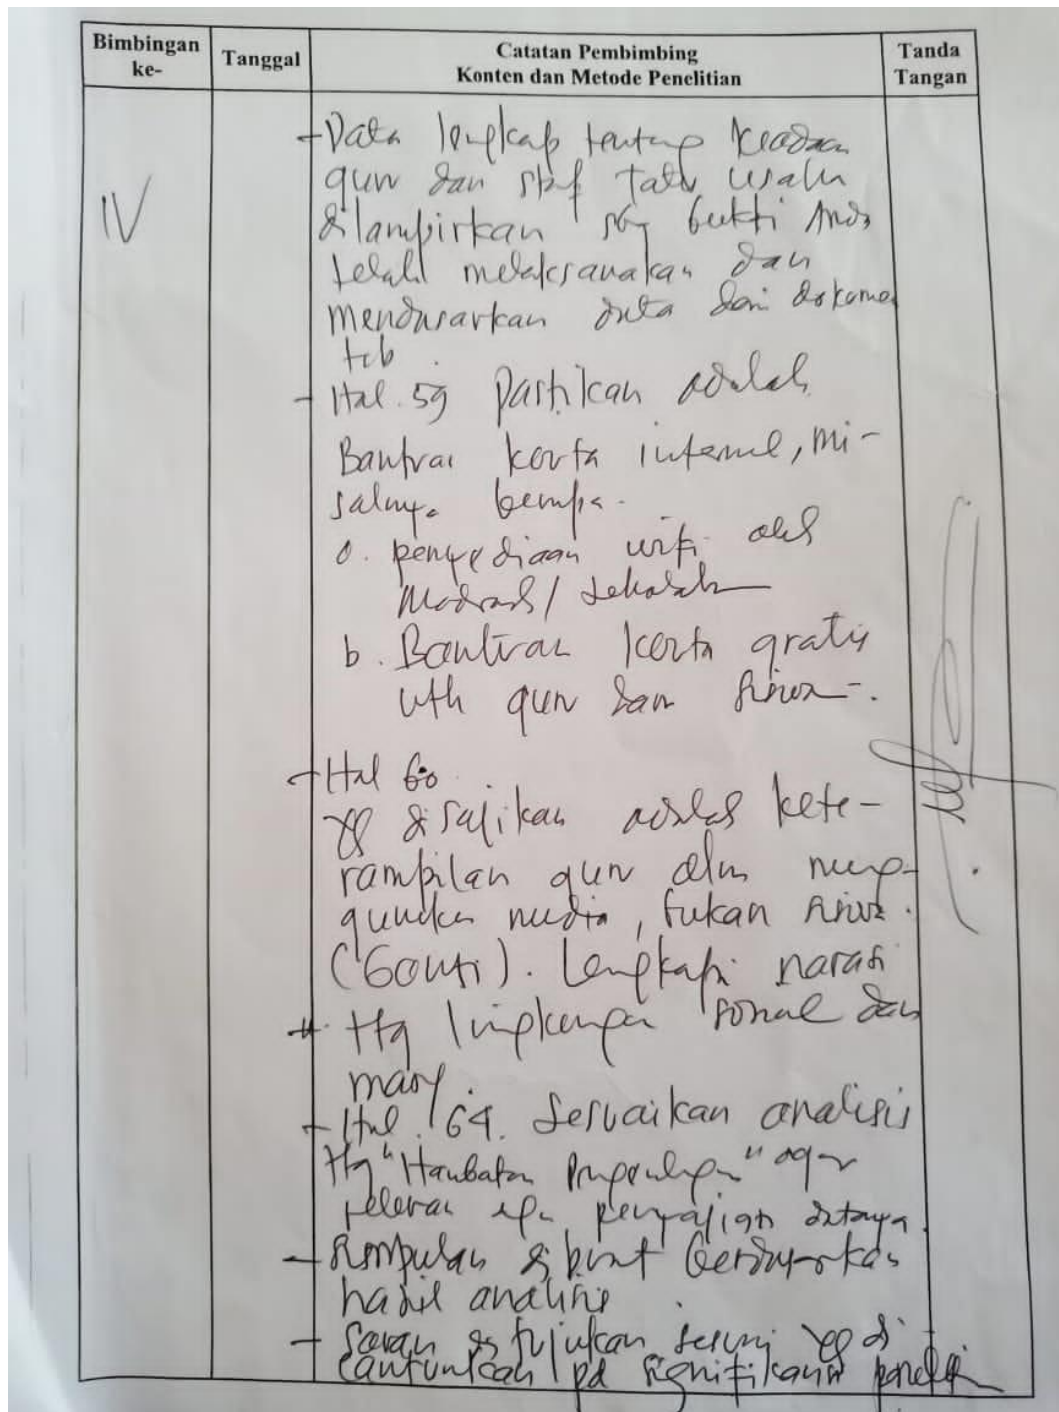 Bimbingan ke-
Tanggal
Catatan Pembimbing
Konten dan Metode Penelitian
Tanda Tangan
IV
- Data lengkap tentang keadaan
guru dan staf tata usaha
dilampirkan sbg bukti Anda
telah melaksanakan dan
mendasarkan data dari dokumen
tsb.
- Hal. 59 Pastikan adalah
Bantuan kuota internet, mi-
salnya berupa.
a. penyediaan wifi oleh
Madrasah/ sekolah
b. Bantuan kuota gratis
utk guru dan siswa.
- Hal 60
yg disajikan adalah kete-
rampilan guru dlm meng-
gunakan media, bukan siswa.
(Ganti). Lengkapi narasi
ttg lingkungan sosial dan
masy.
- Hal. 64. Sesuaikan analisis
ttg "Hambatan " agar
relevan dgn penyajian datanya.
- Simpulan dibuat berdasarkan
hasil analisis.
- Saran ditujukan sesuai yg di
cantumkan pd signifikansi penelitian